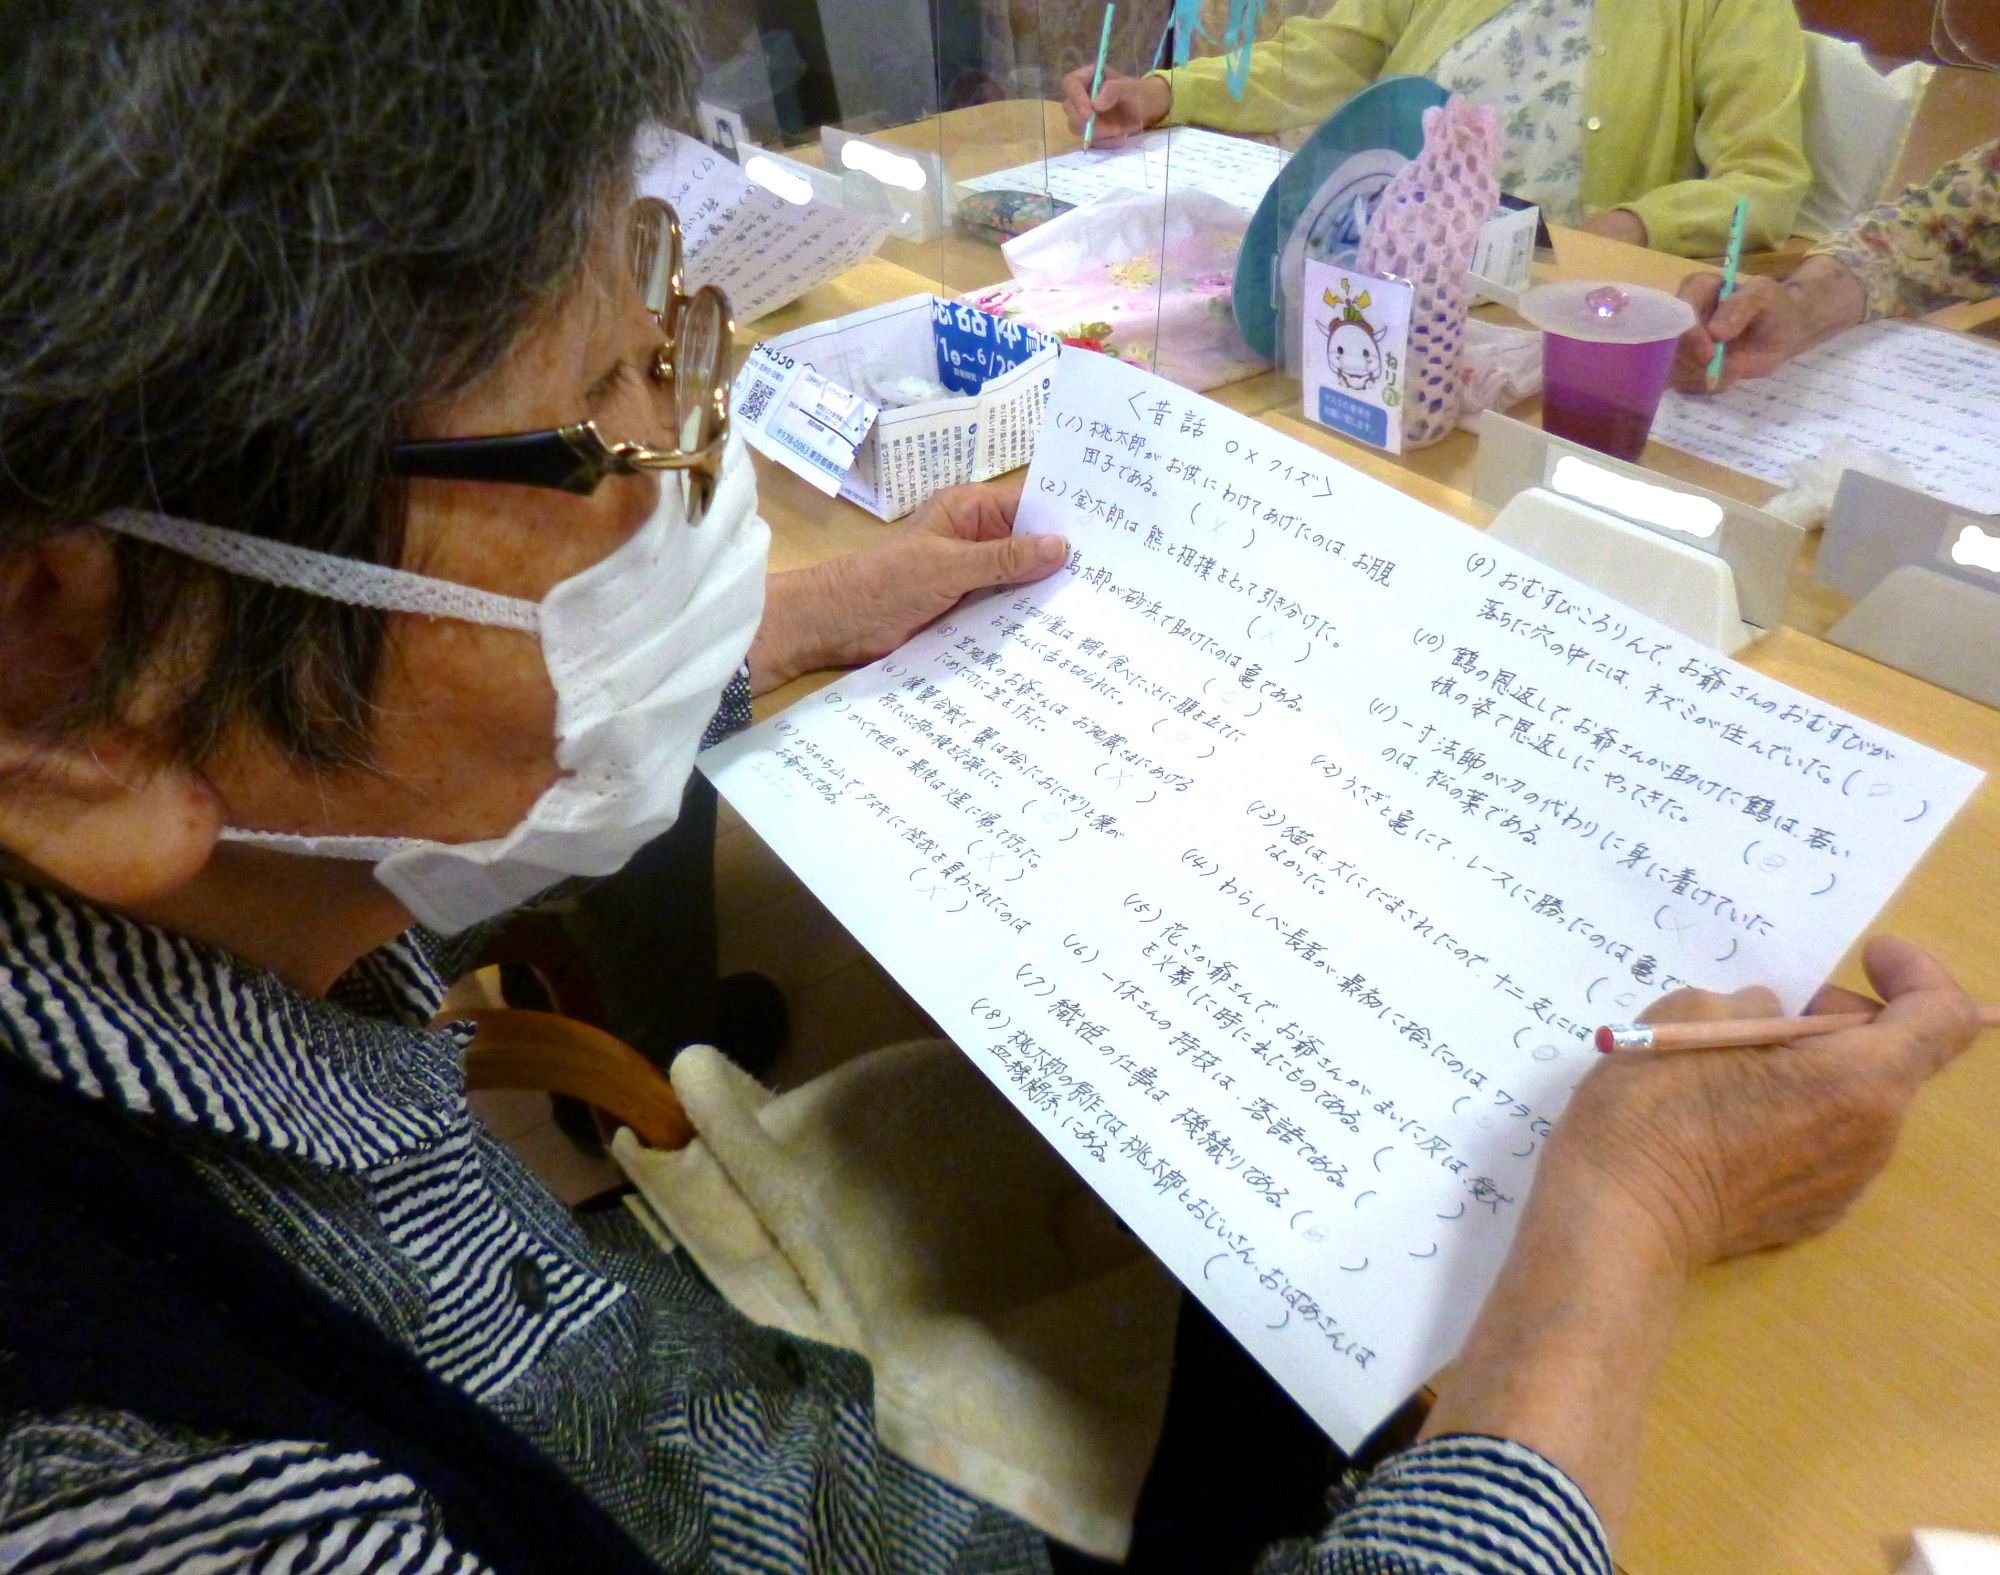 〈昔話 ○×クイズ〉
(1) 桃太郎がお供にわけてあげたのは、お月見
団子である。
( × )
(2) 金太郎は熊と相撲をとって引き分けた。
( × )
島太郎が砂浜で助けたのは亀である。
( ○ )
舌切り雀は、糊を食べたことに腹を立てた
お婆さんに舌を切られた。
( ○ )
(5) 笠地蔵のお爺さんは、お地蔵さまにあげる
ためだけに笠を作った。
( × )
(6) 猿蟹合戦で、蟹は拾ったおにぎりと猿が
持っていた柿の種を交換した。
( ○ )
(7) かぐや姫は最後は火星に帰って行った。
( × )
(8) かちかち山で、タヌキに怪我を負わされたのは
お爺さんである。
( × )
(9) おむすびころりんで、お爺さんのおむすびが
落ちた穴の中には、ネズミが住んでいた。( ○ )
(10) 鶴の恩返しで、お爺さんが助けた鶴は、若い
娘の姿で恩返しにやってきた。
( ○ )
(11) 一寸法師が刀の代わりに身に着けていた
のは、松の葉である。
( × )
(12) うさぎと亀にて、レースに勝ったのは亀で
( ○
(13) 猫は、犬にだまされたので、十二支には
なかった。
( ○
(14) わらしべ長者が、最初に拾ったのは、ワラで
( ○ )
(15) 花さか爺さんで、お爺さんがまいた灰は、愛犬
を火葬した時に出たものである。( )
(16) 一休さんの特技は、落語である。( )
(17) 織姫の仕事は、機織りである。( ○ )
(18) 桃太郎の原作では、桃太郎とおじいさん、おばあさんは
血縁関係にある。
( )
ねり丸
マスクの着用を
お願い致します。
9-4330
〒178-0063 東京都練馬区
/1㊏〜6/20